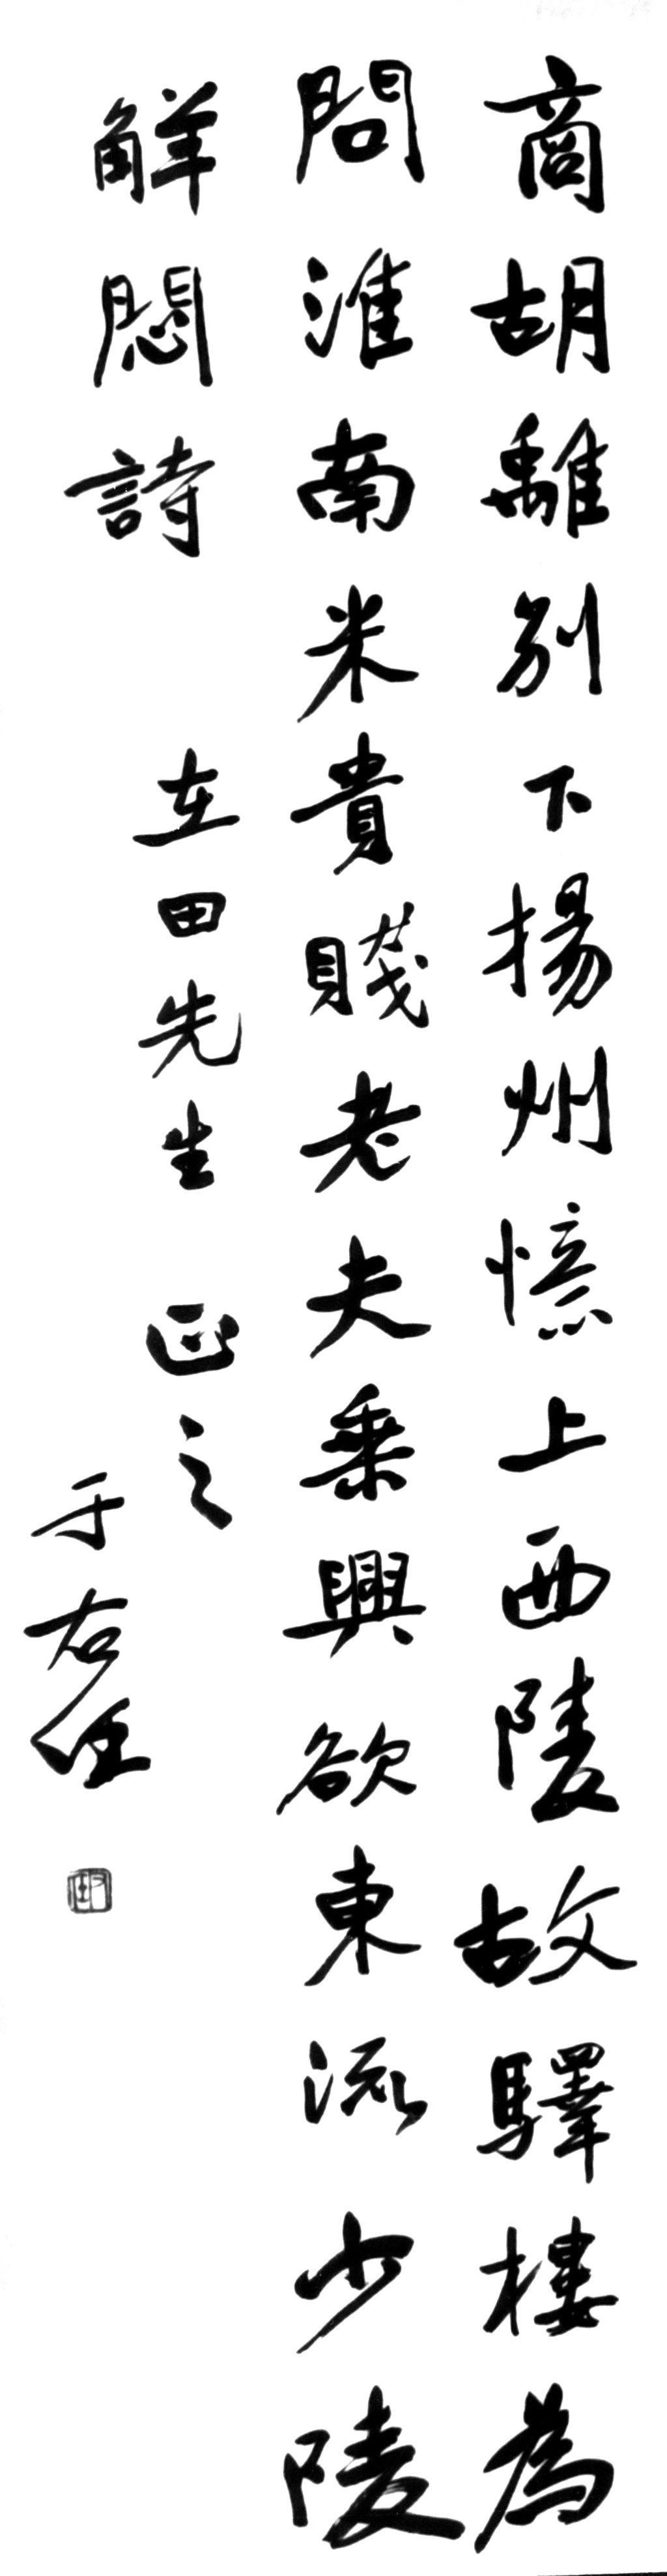 商胡離别下揚州憶上西陵故驛樓為
問淮南米貴賤老夫乘興欲東流少陵
解悶詩
在田先生 正之
于右任